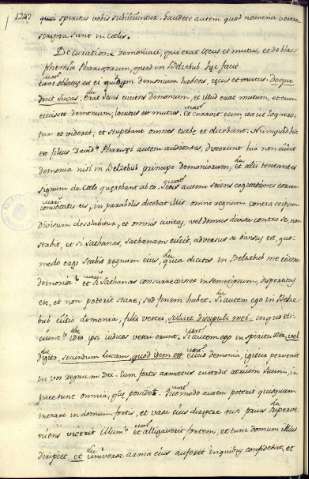 quod spiritus vobis subiiciuntur. Gaudete autem quod nomina vestra
scripta sunt in coelis.
De curatione demoniaci, qui erat cecus et mutus, et de blas-
phemia Pharizeorum, quod in Belzebub hec faceret
oblatus est ei quidam demonium habens, cecus et mutus,
erat Iesus eiiciens demonium, et illud erat mutum, et cum
eiecisset demonium, locutus est mutus, et curavit eum ita ut loquere-
tur et videret, et stupebant omnes turbe et dicebant: Nunquid hic
est filius David? Pharizei autem audientes, dixerunt: hic non eiicit
demonia nisi in Belzebub principe demoniorum, et alii tentantes
signum de celo querebant ab eo. Iesus autem sciens cogitationes eorum
convocatis eis, in parabolis dicebat illis: omne regnum contra se ipsum
divisum desolabitur, et omnis civitas, vel domus divisa contra se, non
stabit, et si Sathanas, Sathanam eiicit, adversus se divisus est, quo-
modo ergo stabit regnum eius, quia dicitis in Belzebub me eiicere
demonia. et si Sathanas consurrexerit in semetipsum, dispertitus
est, et non poterit stare, sed finem habet. Si autem ego in Belze-
bub eiicio demonia, filii vestri, in quo eii-
ciunt? ideo ipsi iudices vestri erunt. Si autem ego in spiritu Dei, vel
digito, secundum Lucam, eiicio demonia, igitur pervenit
in vos regnum Dei. Cum fortis armatus custodit atrium suum, in
pace sunt omnia, que possidet. Quomodo autem potest quisquam
intrare in domum fortis, et vasa eius diripere nisi prius
veniens vicerit illum et alligaverit fortem, et tunc domum illius
diripiet, et universa arma eius auferet in quibus confidebat, et